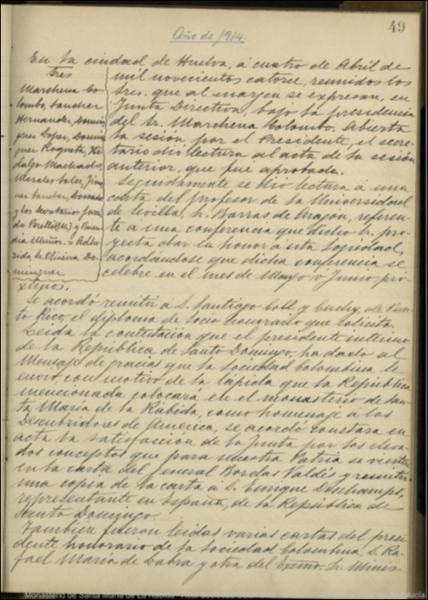 49
Año de 1914.
En la ciudad de Huelva, á cuatro de Abril de
mil novecientos catorce, reunidos los
Sres. que al margen se expresan, en
Junta Directiva, bajo la presidencia
del Sr. Marchena Colombo. Abierta
la sesión por el Presidente, el secre-
tario dió lectura al acta de la sesión
anterior, que fué aprobada.
Sres
Marchena Co-
lombo, Sanchez
Hernandez, Domin-
guez Lopez, Domin-
guez Roqueta, Hi-
dalgo Machado,
Morales
y los Secretarios
y
Muñoz
de Oliveira Do-
minguez
Seguidamente se dió lectura á una
carta del profesor de la Universidad
de Sevilla Sr. Barras de Aragón, referen-
te á una conferencia que dicho Sr. pro-
yecta dar en honor á esta Sociedad,
acordándose que dicha conferencia se
celebre en el mes de Mayo ó Junio pró-
ximos.
Se acordó remitir á D. Santiago y de Puer-
to Rico, el diploma de socio honorario que solicita.
Leida la contestación que el presidente interino
de la República de Santo Domingo, ha dado al
Mensaje de gracias que la Sociedad Colombina le
envió, con motivo de la lápida que la República
mencionada colocará en el monasterio de San-
ta Maria de la Rábida, como homenaje á los
Descubridores de America, se acordó constara en
acta la satisfacción de la Junta por los eleva-
dos conceptos que para nuestra Patria se vierten
en la carta del General Bordas Valdés y remitir
una copia de la carta á D. Enrique Deschamps,
representante en España, de la República de
Santo Domingo.
También fueron leidas varias cartas del presi-
dente honorario de la Sociedad Colombina, D. Ra-
fael Maria de Labra y otra del Excmo. Sr. Minis-